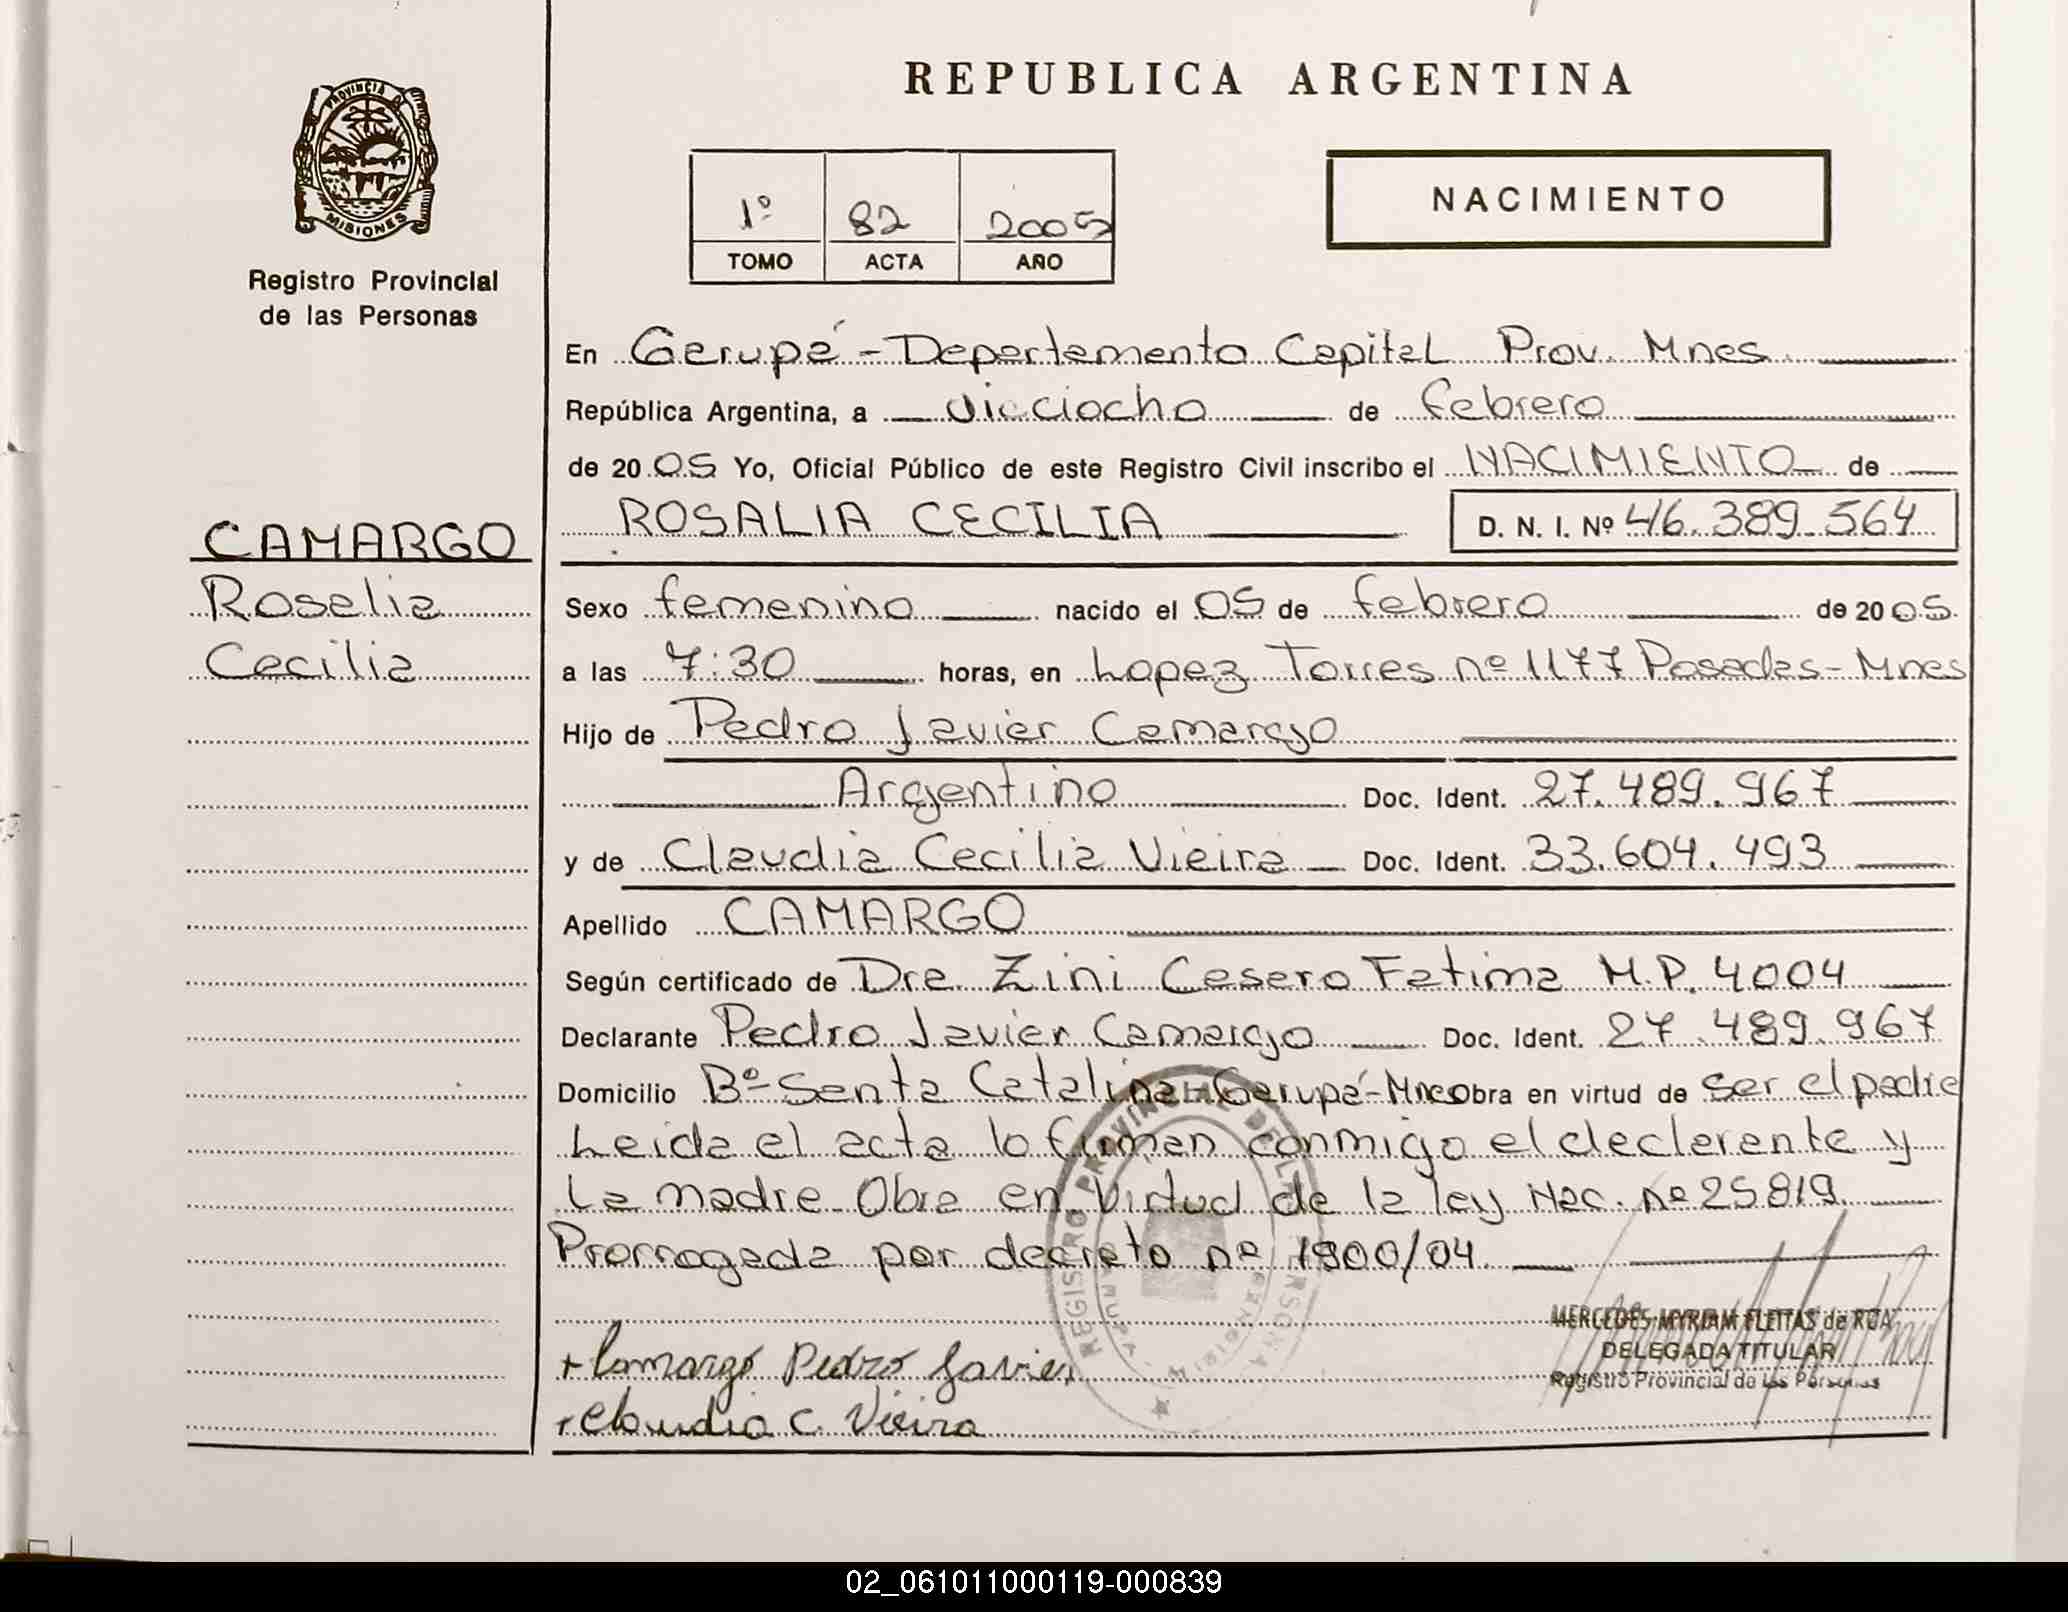 REPUBLICA ARGENTINA
PROVINCIA DE
MISIONES
Registro Provincial
de las Personas
1º 82 2005
TOMO ACTA AÑO
NACIMIENTO
En Garupá - Departamento Capital Prov. Mnes.
República Argentina, a vieciocho de febrero
de 2005 Yo, Oficial Público de este Registro Civil inscribo el NACIMIENTO de
ROSALIA CECILIA D. N. I. Nº 46.389.564
CAMARGO
Rosalia
Cecilia
Sexo femenino nacido el 05 de febrero de 2005.
a las 7:30 horas, en Lopez Torres nº 1177 Posadas - Mnes
Hijo de Pedro Javier Camargo
Argentino Doc. Ident. 27.489.967
y de Claudia Cecilia Vieira Doc. Ident. 33.604.493
Apellido CAMARGO
Según certificado de Dra. Zini Cesero Fatima M.P. 4004
Declarante Pedro Javier Camargo Doc. Ident. 27.489.967
Domicilio Bº Santa Catalina - Garupá - Mnes Obra en virtud de ser el padre
Leida el acta lo firman conmigo el declarante y
la madre. Obra en virtud de la ley Nac. nº 25.819
Prorrogada por decreto nº 1900/04
REGISTRO PROVINCIAL DE LAS PERSONAS
MERCEDES MYRIAM FLEITAS de ROA
DELEGADA TITULAR
Registro Provincial de las Personas
+ Camargo Pedro Javier
+ Claudia C. Vieira
02_061011000119-000839